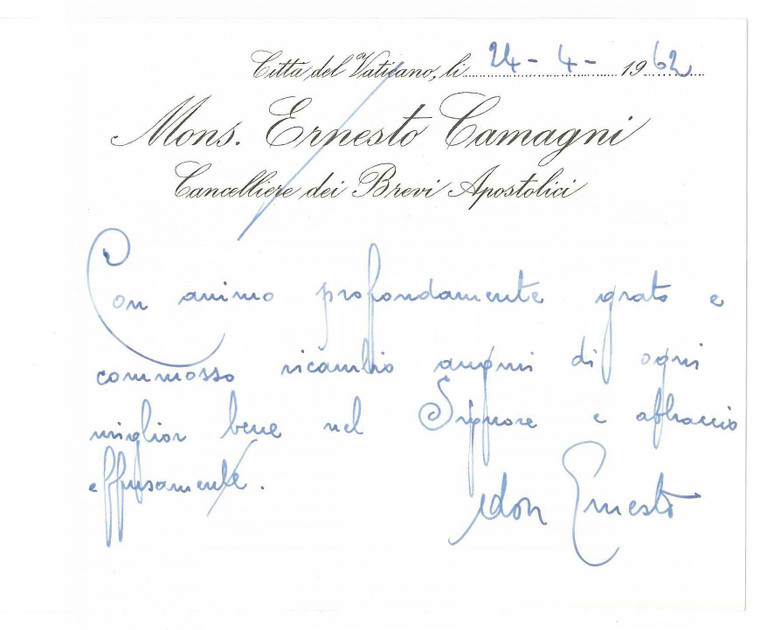 Città del Vaticano, li 24-4-1962
Mons. Ernesto Camagni
Cancelliere dei Brevi Apostolici
Con animo profondamente grato e
commosso ricambio auguri di ogni
miglior bene nel Signore e abbraccio
effusamente.
don Ernesto